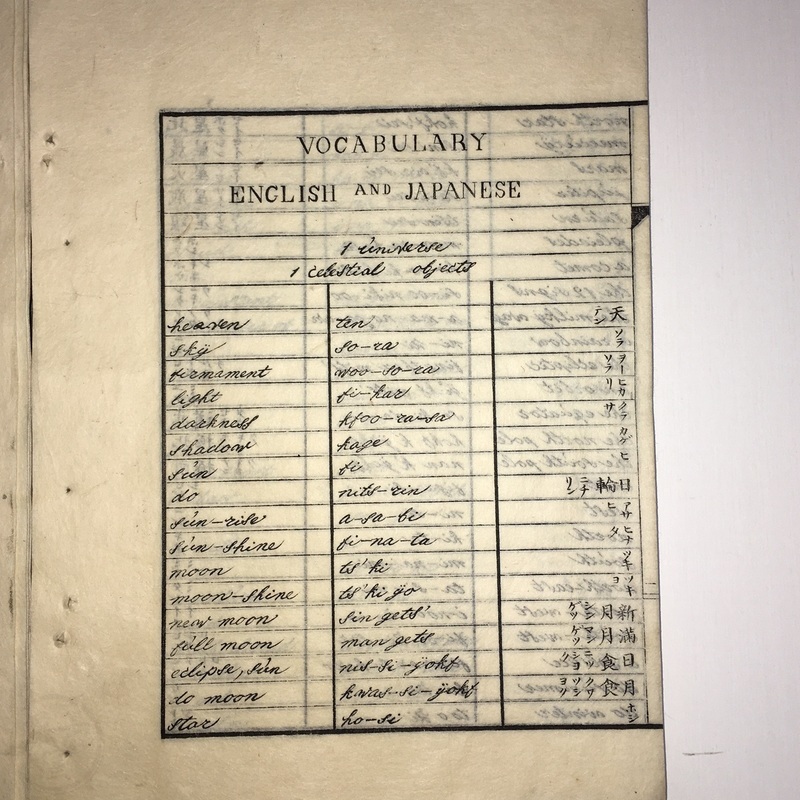 VOCABULARY
ENGLISH AND JAPANESE
1 universe
1 celestial objects
heaven ten 天 テン
sky so-ra ソラ
firmament woo-so-ra ヲーソラ
light fi-kar ヒカリ
darkness kfoo-ra-sa クラサ
shadow kage カゲ
sún fi ヒ
do nits-rin 日輪 ニチリン
sún-rise a-sa-bi アサヒ
sún-shine fi-na-ta ヒナタ
moon ts'ki ツキ
moon-shine ts'ki ÿo ツキヨ
new moon sin gets' 新月 シンゲツ
fúll moon man gets 満月 マンゲツ
eclipse, sún nis-si-ÿokf 日食 ニツシヨク
do moon kwas-si-ÿokf 月食
star ho-si ホシ